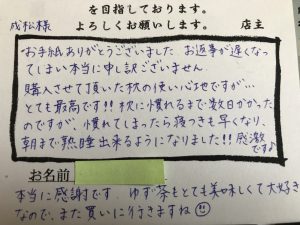 を目指しております。
成松様
よろしくお願いします。 店主
お手紙ありがとうございました。お返事が遅くなっ
てしまい本当に申し訳ございません。
購入させて頂いた枕の使い心地ですが…
とても最高です!! 枕に慣れるまで数日かかった
のですが、慣れてしまったら寝つきも早くなり、
朝まで熟睡出来るようになりました!! 感激
です♪
お名前
本当に感謝です。ゆず茶もとても美味しくて大好き
なので、また買いに行きますね